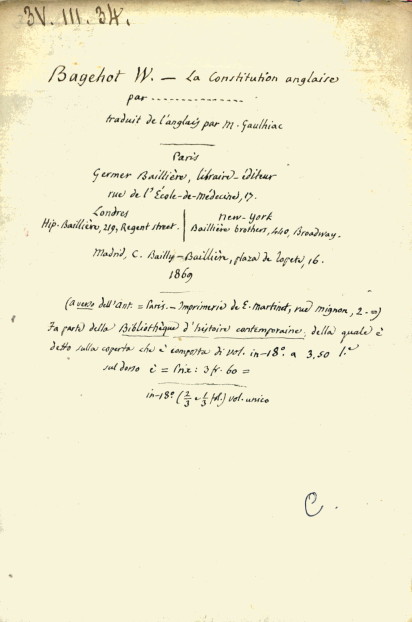 3V. III. 34.
Bagehot W. — La Constitution anglaise
par ..............
traduit de l'anglais par M. Gaulhiac
Paris
Germer Baillière, libraire-éditeur
rue de l'École-de-Médecine, 17.
Londres
Hip. Baillière, 219, Regent street.
New-York
Baillière brothers, 440, Broadway.
Madrid, C. Bailly-Baillière, plaza de Topete, 16.
1869
(a verso dell'Ant. = Paris. - Imprimerie de E. Martinet, rue Mignon, 2. =)
Fa parte della Bibliothèque d'histoire contemporaine, della quale è
detto sulla coperta che è composta di vol. in-18º. a 3,50 l'
sul dorso è = Prix: 3 fr. 60 =
in-18º (2/3 e 1/3 fol.) vol. unico
C.